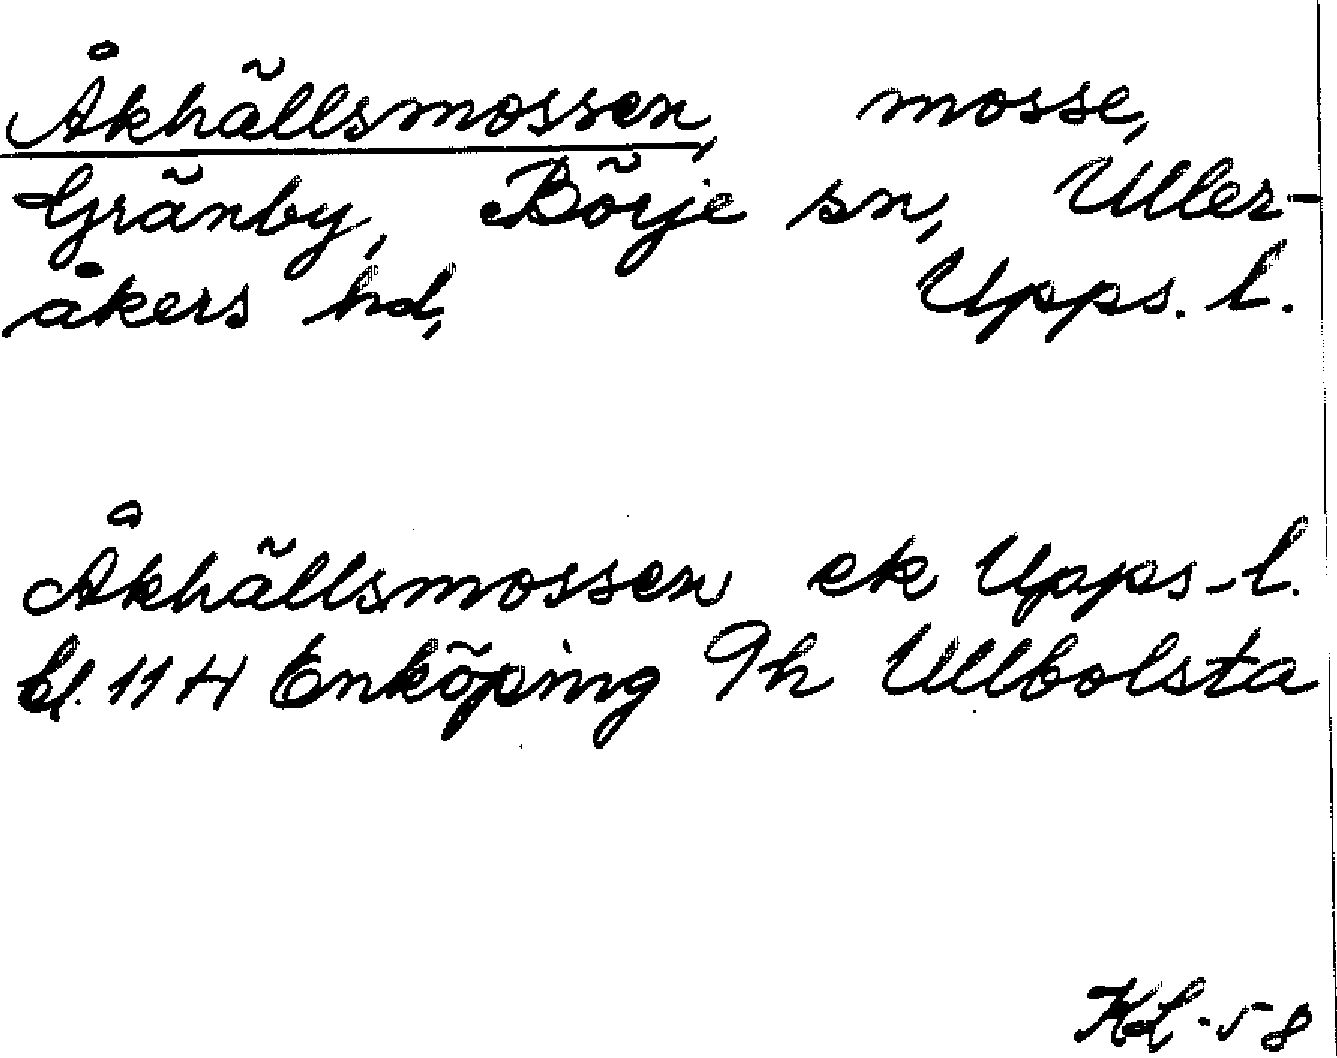 Åkhällsmossen, mosse,
Gränby, Börje sn, Uller-
åkers hd, Upps. l.
Åkhällsmossen ek Upps. l.
bl. 11 H Enköping 9h Ullbolsta
KL -58